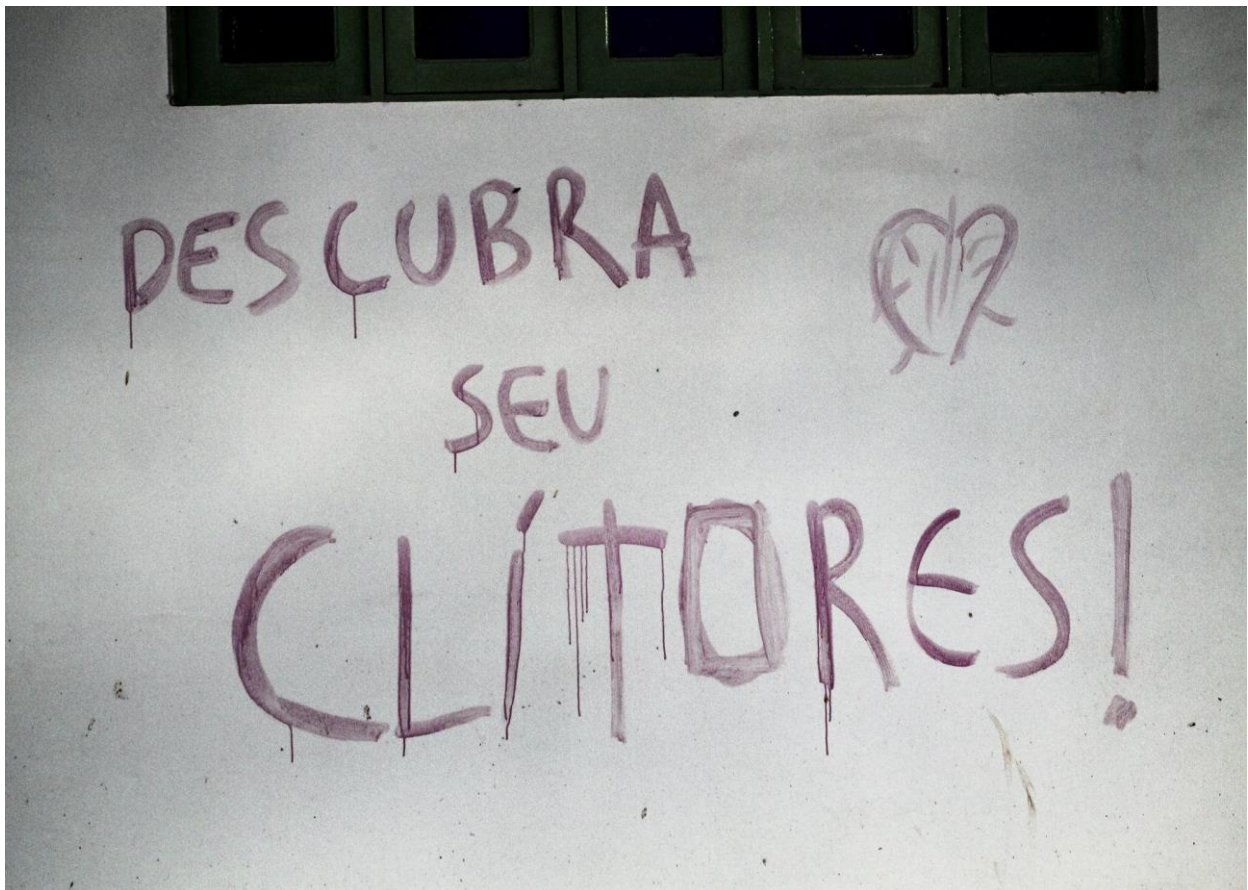 DESCUBRA
SEU
CLÍTORES!